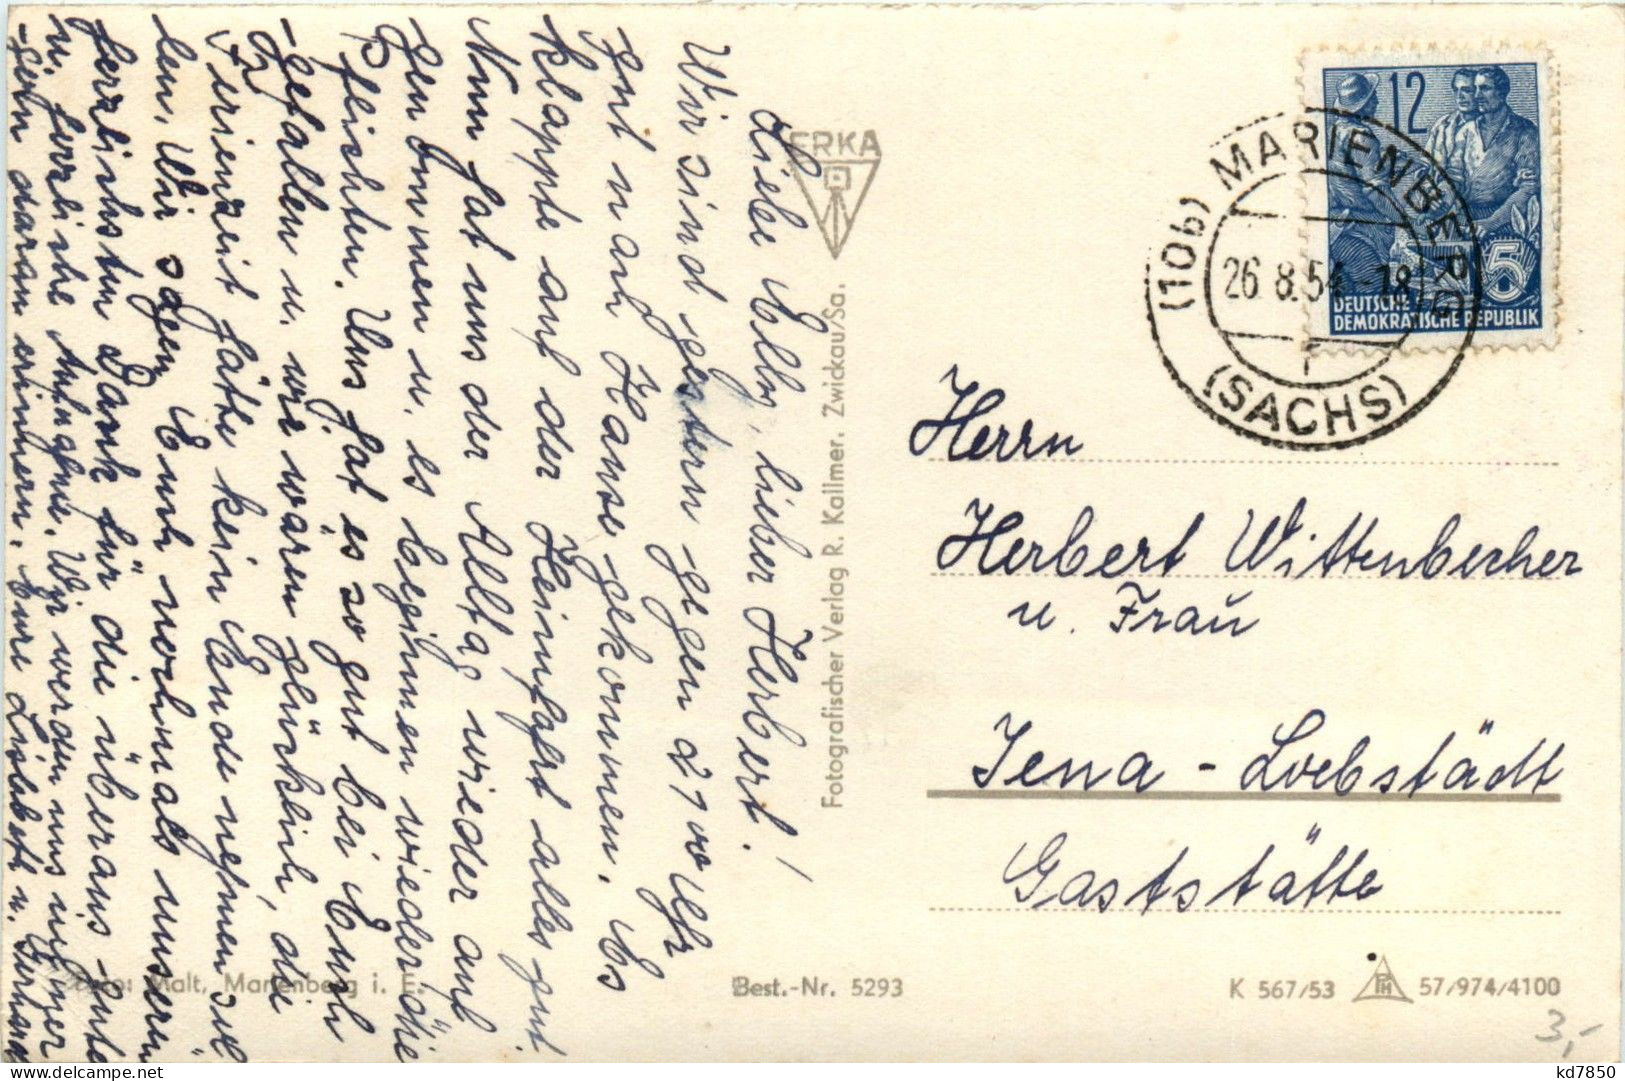 Liebe Elly, lieber Herbert!
Wir sind gestern gegen 21 00 Uhr
gut nach Hause gekommen. Es
klappte auf der Heimfahrt alles gut
Nun hat uns der Alltag wieder auf-
genommen u. es beginnen wieder die
Pflichten. Uns hat es so gut bei Euch
gefallen u. wir wären glücklich, die
Ferienzeit hätte kein Ende nehmen sol
len. Wir sagen Euch nochmals unseren
herzlichsten Dank für die überaus gute
u. herrliche Aufnahme. Wir werden uns immer
gern daran erinnern. Eure Lisbeth u. Gerhard
ERKA
Fotografischer Verlag R. Kallmer, Zwickau/Sa.
12
5
DEUTSCHE
DEMOKRATISCHE REPUBLIK
(10b) MARIENBERG
26.8.54.-18
(SACHS)
r
Herrn
Herbert Wittenbecher
u. Frau
Jena - Loebstädt
Gaststätte
Foto: Malt, Marienberg i. E.
Best.-Nr. 5293
K 567/53
57/974/4100
3,-
kd7850